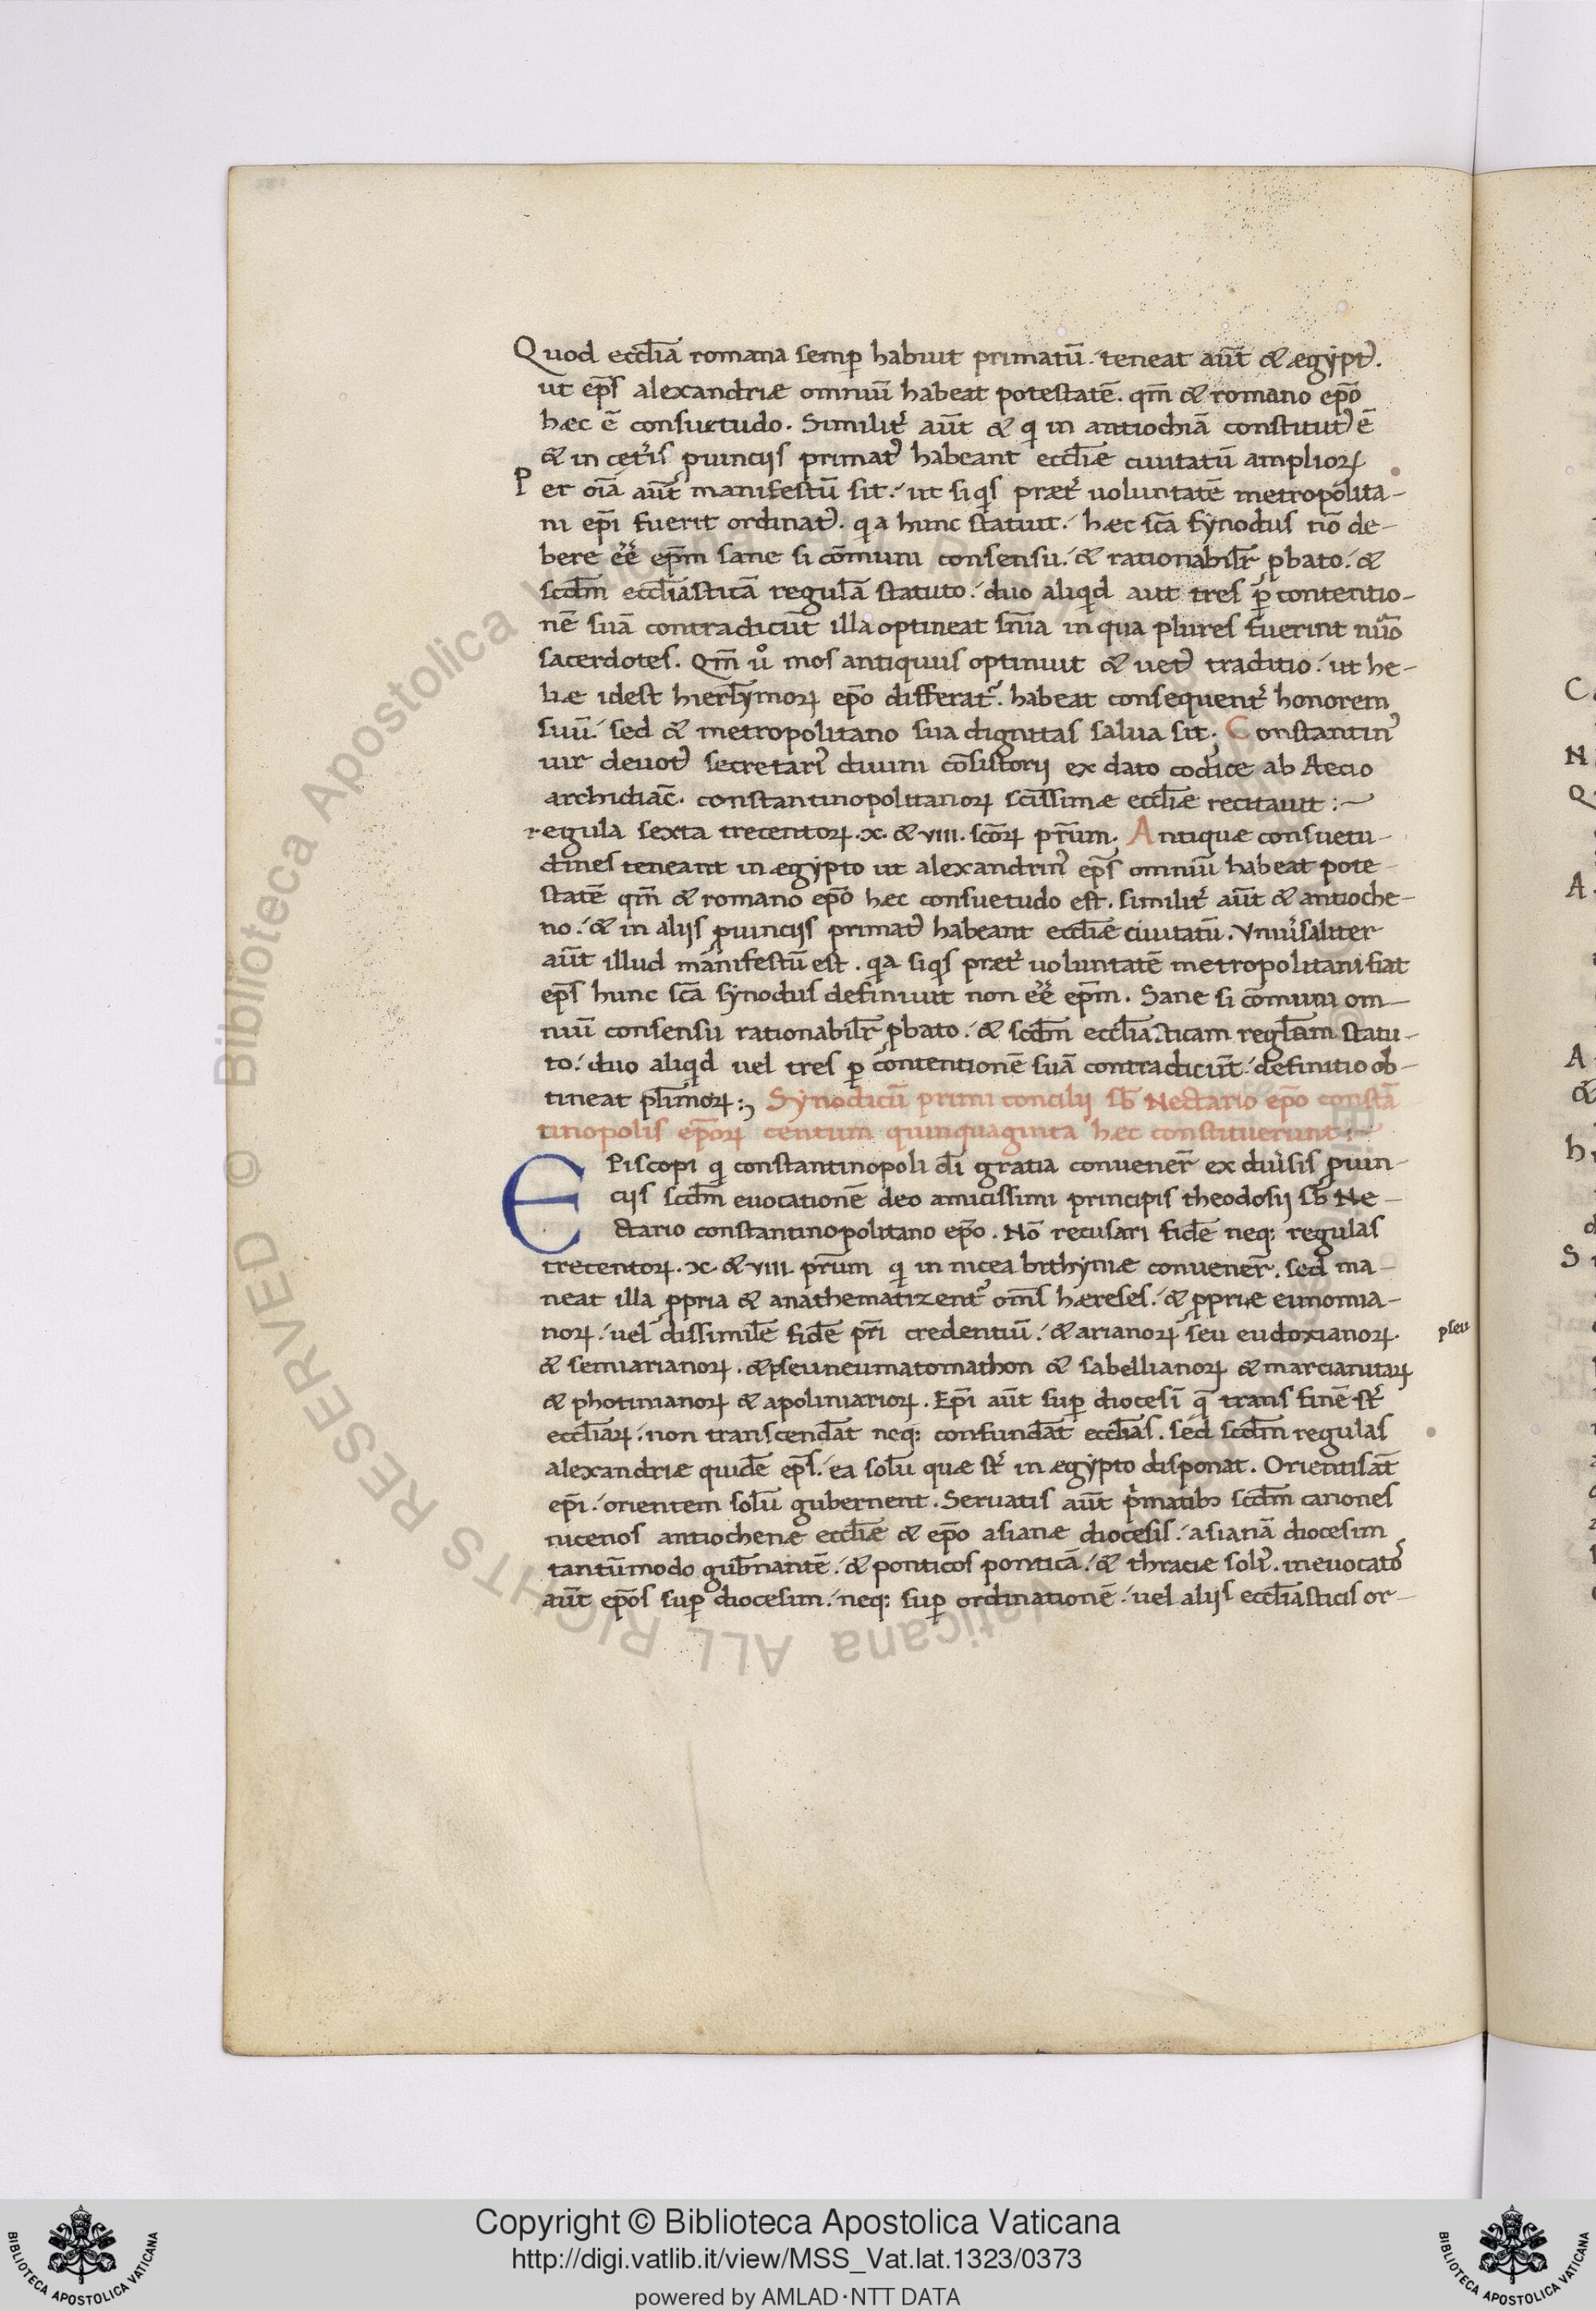 Quod eccl̄ia romana semꝑ habuit primatū. teneat aūt & ægyptꝰ.
ut ep̄s alexandriæ omniū habeat potestatē. qm̄ & romano ep̄o
hæc ē consuetudo. Similit̉ aūt & q̇ in antiochiā constitutꝰ ē
& in cet̉is ꝓuincijs primatꝰ habeant eccl̄iæ ciuitatū ampliorꝝ
Per oīa aūt manifestū sit. ut siqs præt̉ uoluntatē metropolita-
ni ep̄i fuerit ordinatꝰ. q a hunc statuit. hæc sc̄a synodus nō de-
bere ēē ep̄m sane si cōmuni consensu. & rationabilr̄ ꝓbato. &
scd̄m eccl̄iasticā regulā statuto. duo aliqd aut tres ꝑ contentio-
nē suā contradicūt illa optineat sn̄ia in qua plures fuerint nūo
sacerdotes. Qm̄ uͦ mos antiquus optinuit & uetꝰ traditio. ut he-
liæ idest hierl̄ymorꝝ ep̄o differat᷑. habeat consequent̉ honorem
suū. sed & metropolitano sua dignitas salua sit. Constantinꝰ
uir deuotꝰ secretariꝰ diuini cōsistorij ex dato codice ab Aecio
archidiac̄. constantinopolitanorꝝ sc̄issimæ eccl̄iæ recitauit:~
regula sexta trecentorꝝ .x. & viii. sc̄orꝝ pr̄um. Antiquæ consuetu-
dines teneant in ægypto ut alexandrinꝰ ep̄s omniū habeat pote-
statē qm̄ & romano ep̄o hæc consuetudo est. similit̉ aūt & antioche-
no. & in alijs ꝓuincijs primatꝰ habeant eccl̄iæ ciuitatū. Vniủsaliter
aūt illud manifestū est. qa siqs præt̉ uoluntatē metropolitani fiat
ep̄s hunc sc̄a synodus definiuit non ēē ep̄m. Sane si cōmuni om-
niū consensu rationabilr̄ ꝓbato. & scd̄m eccl̄iasticam regl̄am statu-
to. duo aliqd uel tres ꝑ contentionē suā contradicūt. definitio ob-
tineat pl̄imorꝝ:, Synodicū primi concilij sb̄ Nectario ep̄o constā
tinopolis ep̄orꝝ centum quinquaginta hæc constituerunt:~
EPiscopi q̇ constantinopoli dī gratia convener̄ ex diủsis ꝓuin-
cijs scd̄m euocationē deo amicissimi principis theodosij sb̄ Ne-
ctario constantinopolitano ep̄o. Nō recusari fidē neq: regulas
trecentorꝝ .x. & viii. pr̄um q̇ in nicea bithyniæ conuener̄. sed ma-
neat illa ꝓpria & anathematizent᷑ om̄s hæreses. & ꝓpriæ eunomia-
norꝝ. uel dissimilē fidē pr̄i credentiū. & arianorꝝ seu eudoxianorꝝ.
pseu
& semiarianorꝝ. & pseuneumatomathon & sabellianorꝝ & marcianitarꝝ
& photinianorꝝ & apoliniariorꝝ. Ep̄i aūt suꝑ diocesī q̄ trans finē st̉
eccl̄iarꝝ. non transcendāt neq: confundāt eccl̄ias. sed scd̄m regulas
alexandriæ quidē ep̄s. ea solū quæ st̉ in ægypto disponat. Orientis āt
ep̄i. orientem solū gubernent. Seruatis aūt p̉matibꝫ scd̄m canones
nicenos antiochenæ eccl̄iæ & ep̄o asianæ diocesis. asianā diocesim
tantūmodo gub̄nantē. & ponticos ponticā. & thraciæ soliꝰ. inevocatos
aūt ep̄os suꝑ diocesim. neq: suꝑ ordinationē. uel alijs eccl̄iasticis or-
Copyright © Biblioteca Apostolica Vaticana
http://digi.vatlib.it/view/MSS_Vat.lat.1323/0373
powered by AMLAD·NTT DATA